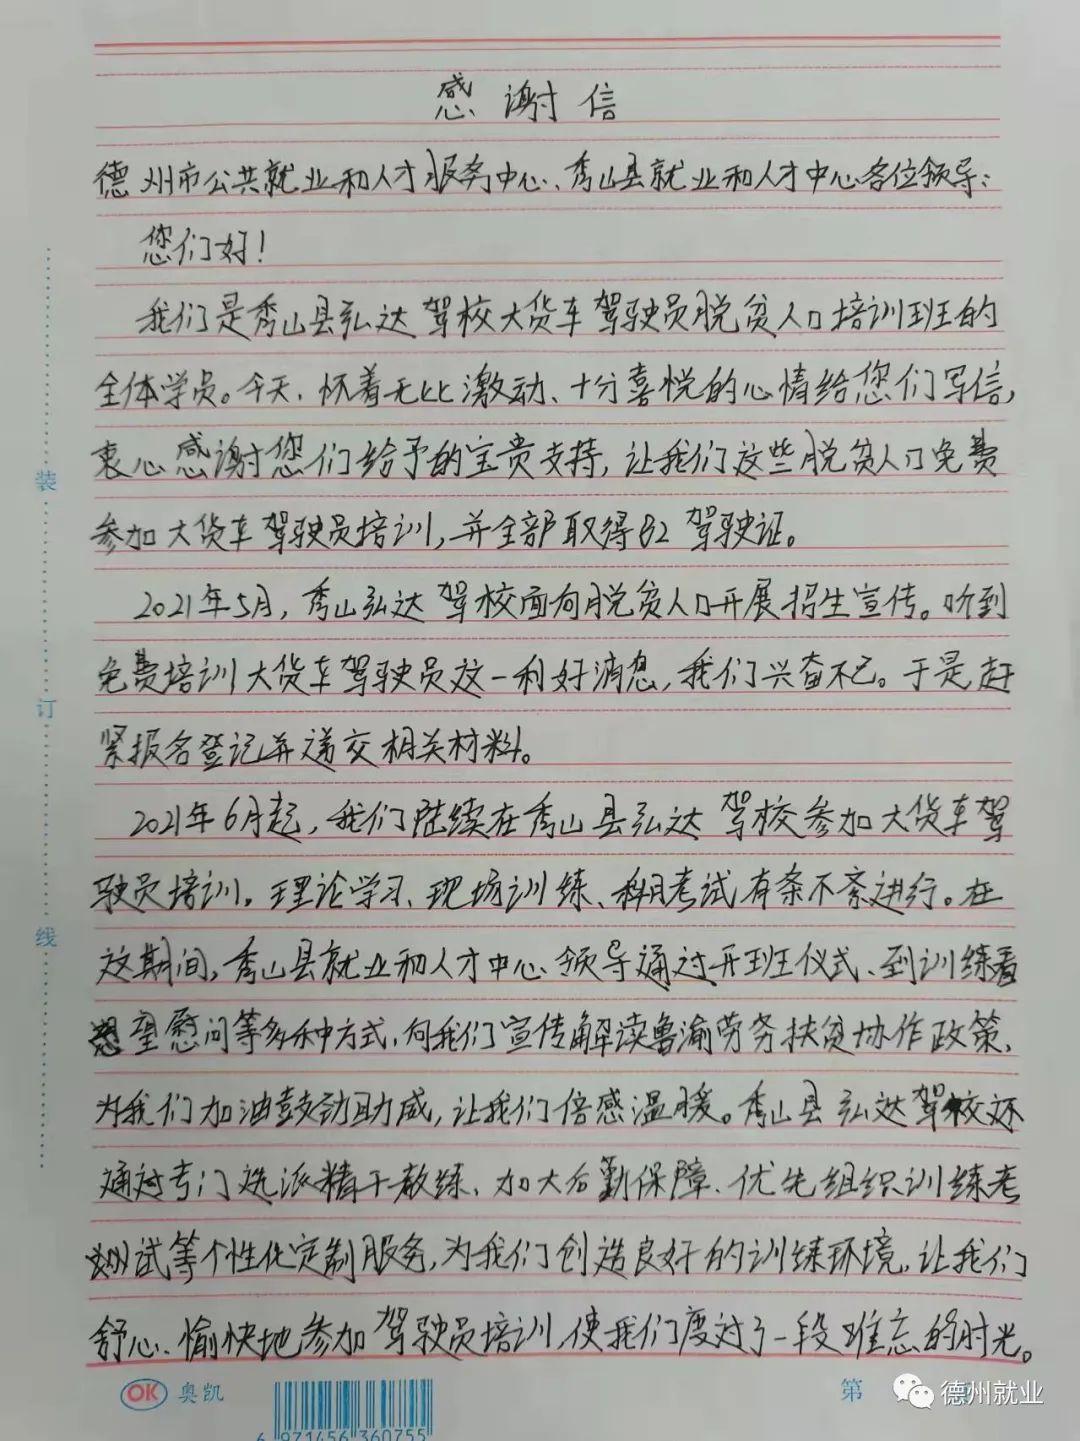 感谢信
德州市公共就业和人才服务中心、秀山县就业和人才中心各位领导：
您们好！
我们是秀山县弘达驾校大货车驾驶员脱贫人口培训班的
全体学员。今天，怀着无比激动、十分喜悦的心情给您们写信，
衷心感谢您们给予的宝贵支持，让我们这些脱贫人口免费
参加大货车驾驶员培训，并全部取得B2驾驶证。
2021年5月，秀山弘达驾校面向脱贫人口开展招生宣传。听到
免费培训大货车驾驶员这一利好消息，我们兴奋不已。于是赶
紧报名登记并递交相关材料。
2021年6月起，我们陆续在秀山县弘达驾校参加大货车驾
驶员培训。理论学习、现场训练、科目考试有条不紊进行。在
这期间，秀山县就业和人才中心领导通过开班仪式、到训练看
望慰问等多种方式，向我们宣传解读鲁渝劳务扶贫协作政策、
为我们加油鼓劲助威，让我们倍感温暖。秀山县弘达驾校还
通过专门选派精干教练、加大后勤保障、优先组织训练考
试等个性化定制服务，为我们创造良好的训练环境，让我们
舒心、愉快地参加驾驶员培训，使我们度过了一段难忘的时光。
装
订
线
OK 奥凯
6 971456 360755
第
德州就业